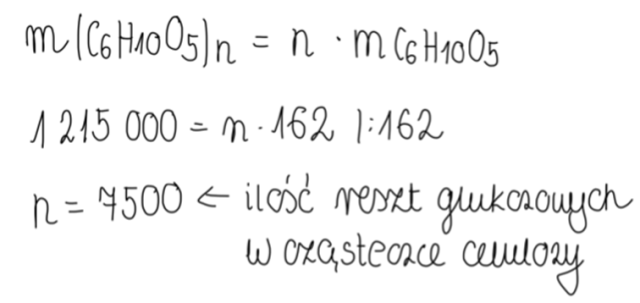 m(C6H10O5)n = n · mC6H10O5
1 215 000 = n · 162 |:162
n = 7500 ← ilość reszt glukozowych
w cząsteczce celulozy